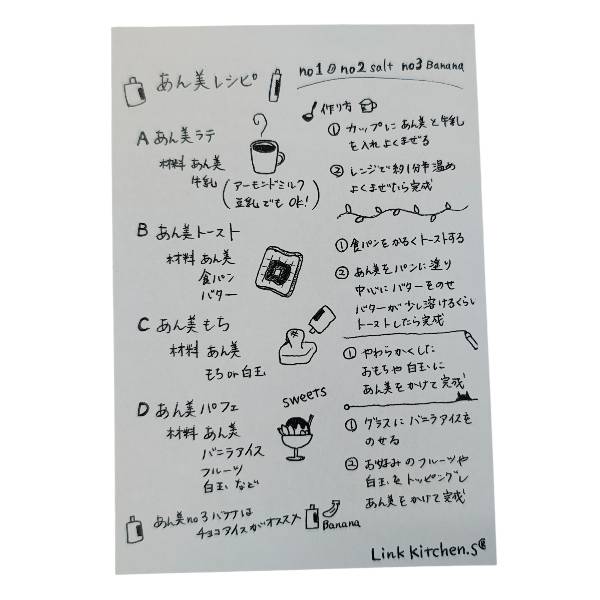 あん美レシピ
no1 no2 salt no3 Banana
作り方
A あん美ラテ
材料 あん美
牛乳
(アーモンドミルク
豆乳でも OK!)
① カップに あん美と牛乳
を入れよくまぜる
② レンジで約1分半温め
よくまぜたら完成
B あん美トースト
材料 あん美
食パン
バター
① 食パンをかるくトーストする
② あん美をパンに塗り
中心にバターをのせ
バターが少し溶けるくらい
トーストしたら完成
C あん美もち
材料 あん美
もち or 白玉
① やわらかくした
おもちや白玉に
あん美をかけて完成
D あん美パフェ
sweets
材料 あん美
バニラアイス
フルーツ
白玉など
① グラスにバニラアイスを
のせる
② お好みのフルーツや
白玉をトッピングし
あん美をかけて完成
あん美no3パフェは
チョコアイスがオススメ
Banana
Link Kitchen.S